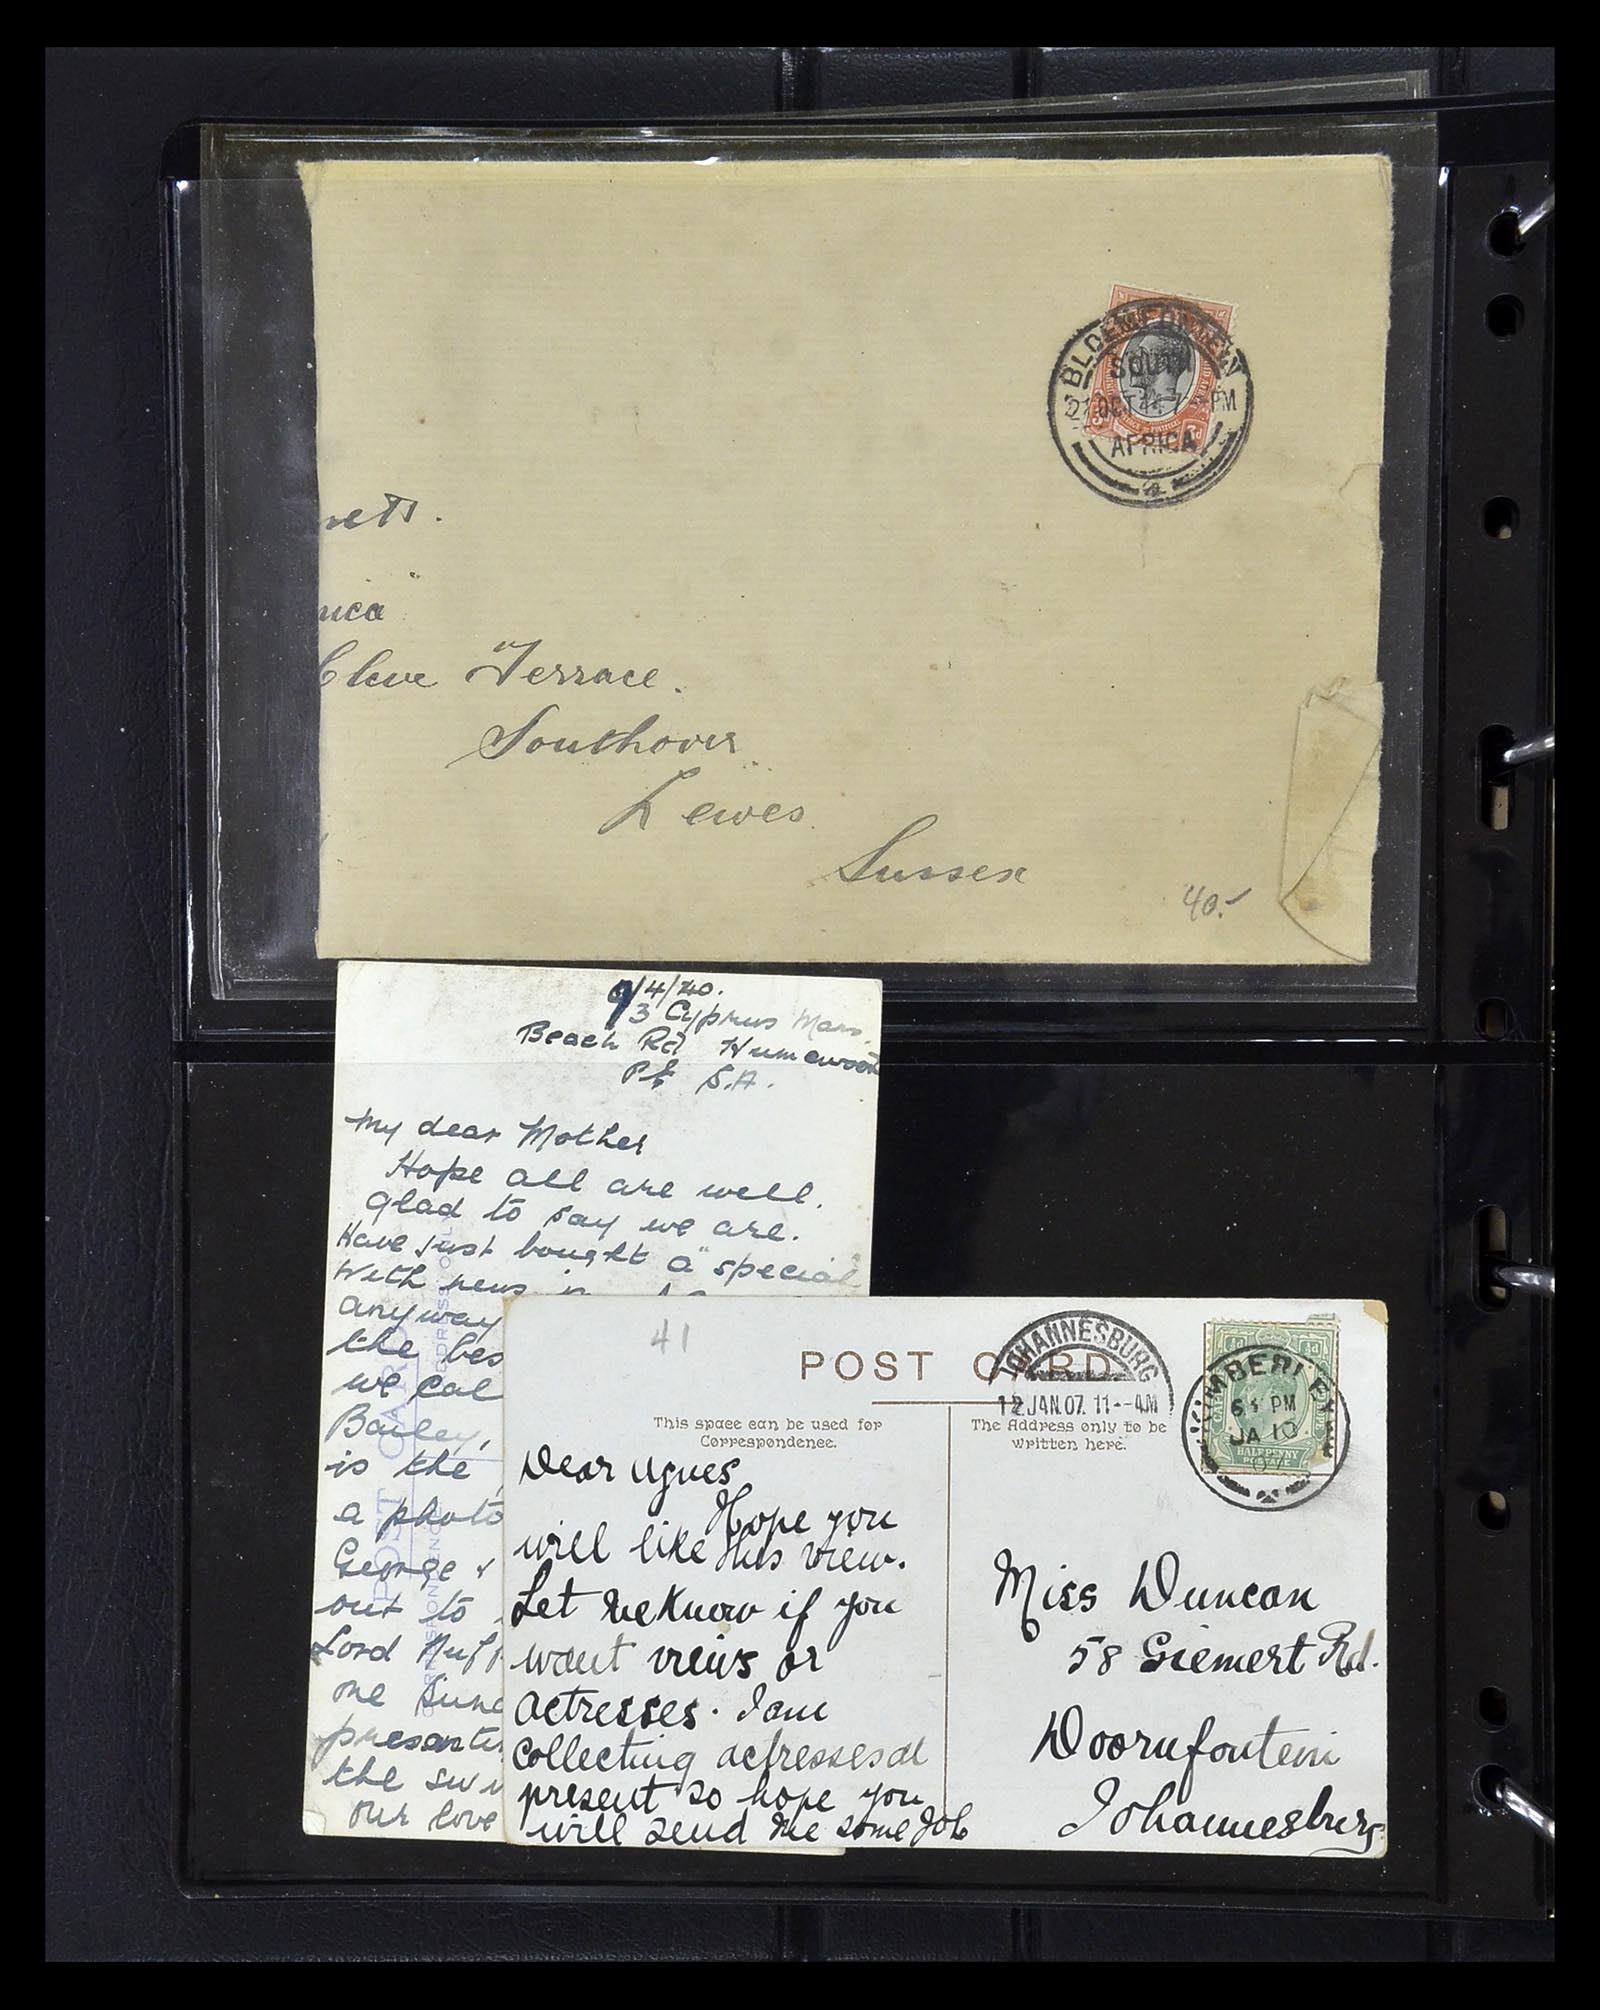 BLOEMFONTEIN
SOUTH
21 OCT 14 7 - PM
AFRICA
3d 3d
netts.
nica
Cleve Terrace.
Southover
Lewes.
Sussex
40.-
9/4/40.
3 Cyprus Mans.
Beach Rd Humewood
P.E. S.A.
My dear Mother
Hope all are well.
Glad to say we are.
Have just bought a "special
with news in
anyway
the bes
we cal
Bailey,
is the
a photo
George &
out to
Lord Nuff
one Sund
presentin
the swi
our love
POST CARD
CORRESPONDENCE
ADDRESS ONLY
41
POST CARD
JOHANNESBURG
12 JAN.07. 11--AM
KIMBERLEY
PM
JA 10
07
½d ½d
HALFPENNY
POSTAGE
This space can be used for
Correspondence.
The Address only to be
written here.
Dear Agnes
Hope you
will like this view.
Let me know if you
want views or
actresses. I am
collecting actresses at
present so hope you
will send me some Job
Miss Duncan
58 Siemert Rd.
Doornfontein
Johannesburg